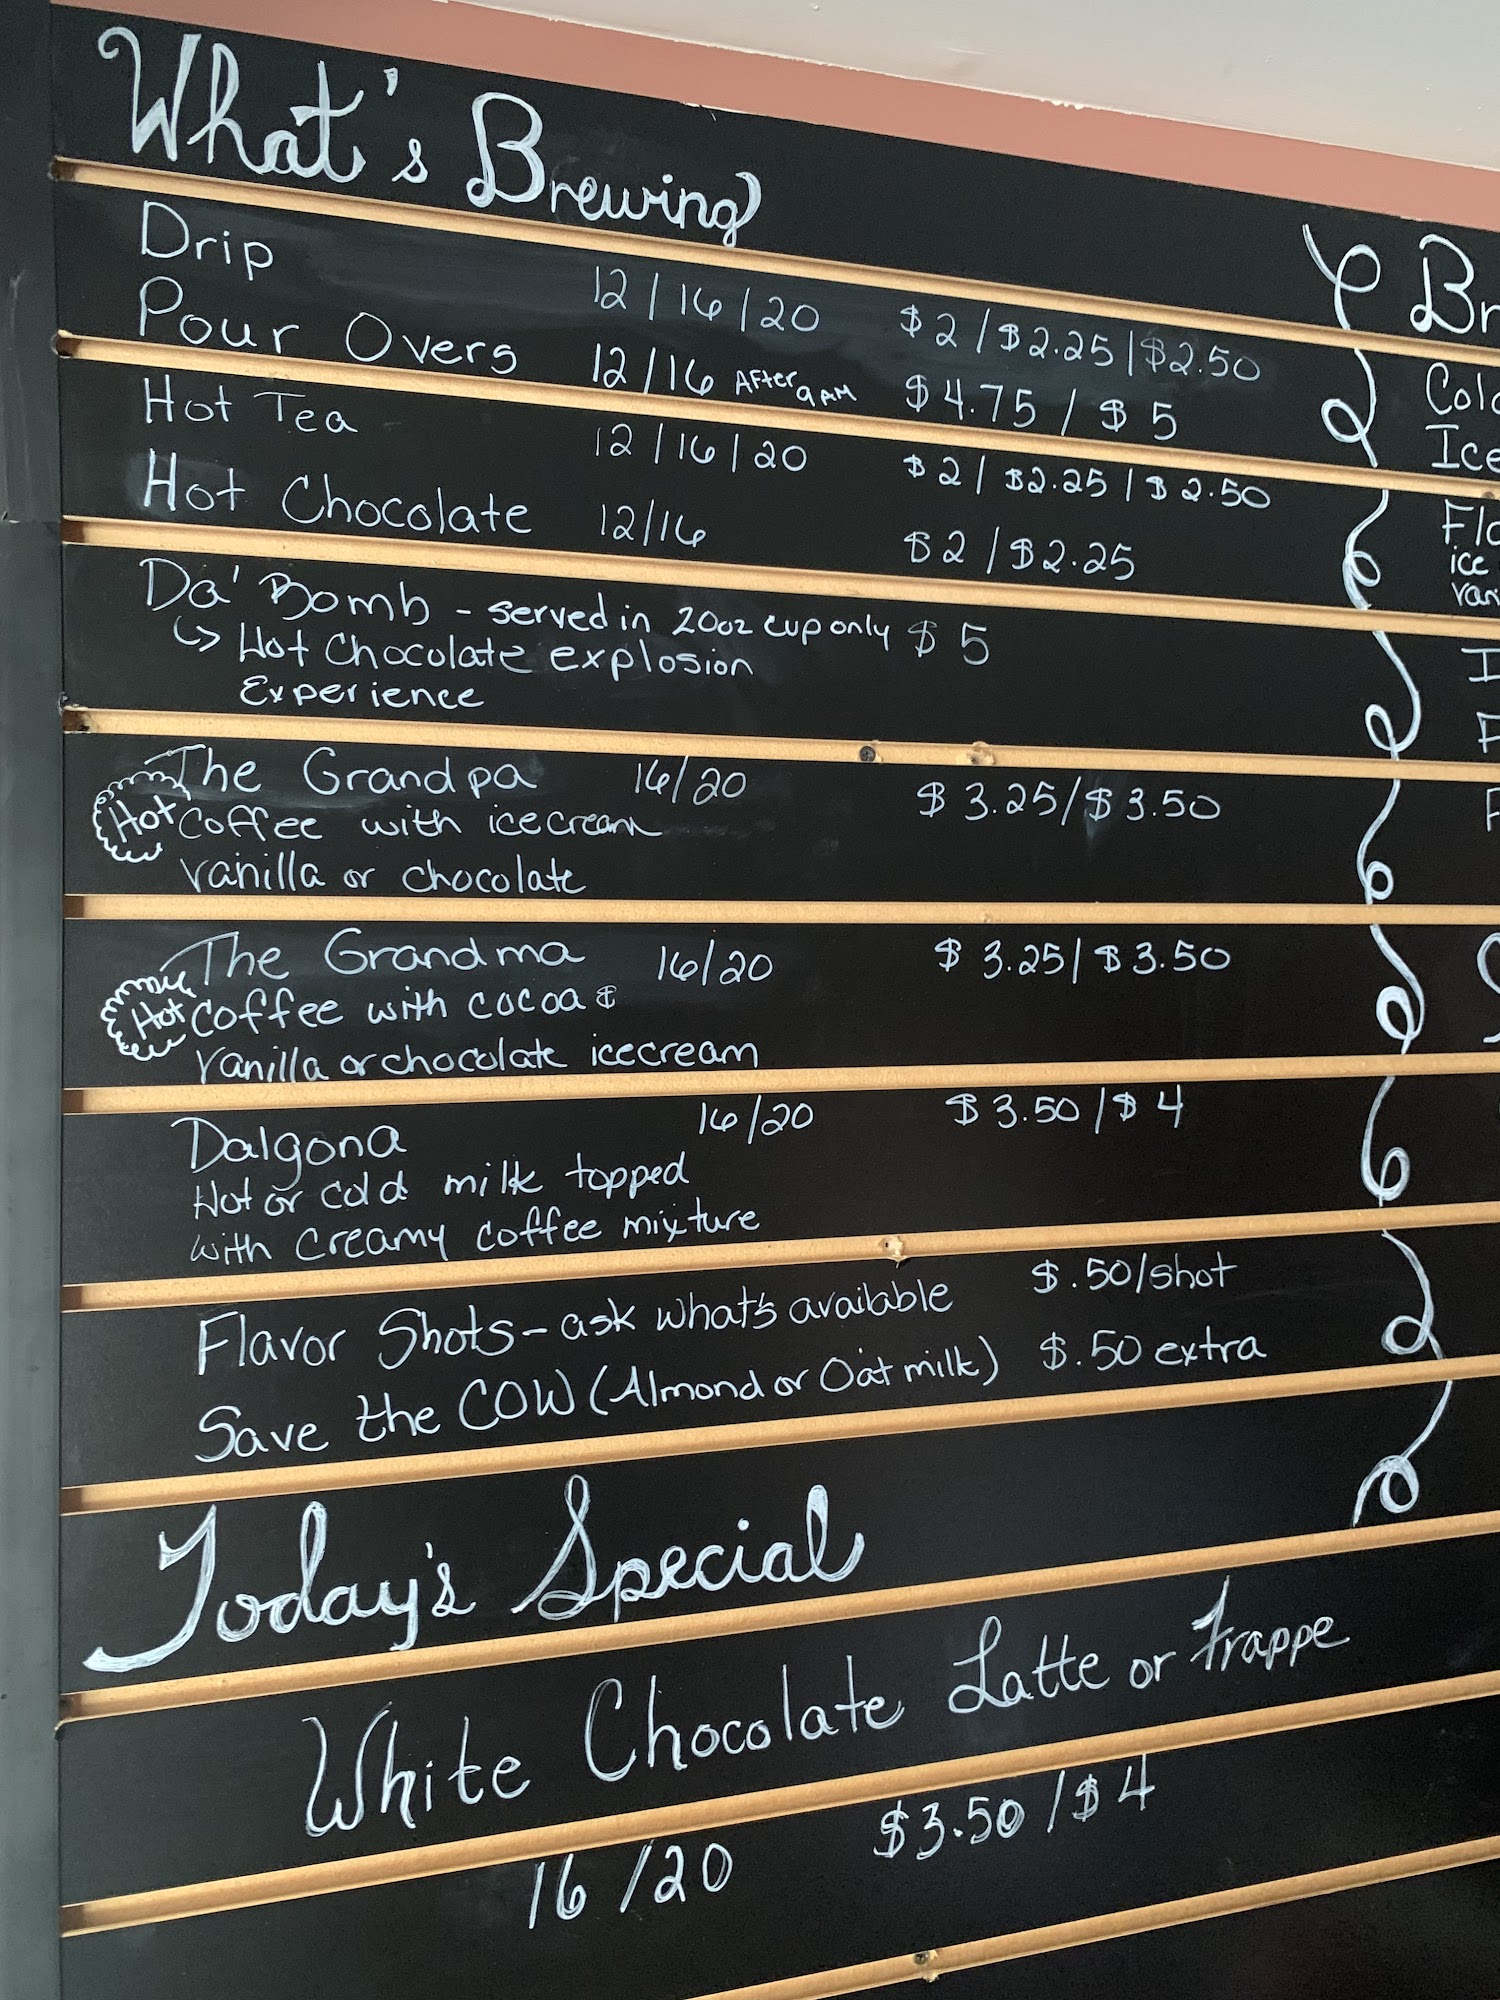 What's Brewing
Drip 12/16/20 $2/$2.25/$2.50
Pour Overs 12/16 After 9AM $4.75/$5
Hot Tea 12/16/20 $2/$2.25/$2.50
Hot Chocolate 12/16 $2/$2.25
Da' Bomb - served in 20oz cup only $5
Hot Chocolate explosion
Experience
The Grandpa 16/20 $3.25/$3.50
Hot Coffee with icecream
vanilla or chocolate
The Grandma 16/20 $3.25/$3.50
Hot Coffee with cocoa &
vanilla or chocolate icecream
Dalgona 16/20 $3.50/$4
Hot or cold milk topped
with creamy coffee mixture
Flavor Shots - ask what's available $.50/shot
Save the COW (Almond or Oat milk) $.50 extra
Today's Special
White Chocolate Latte or Frappe
16/20 $3.50/$4
Br
Col
Ice
Fl
ice
van